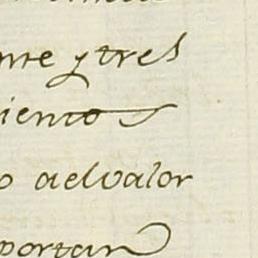 nte y tres
iento s
o del valor
portan